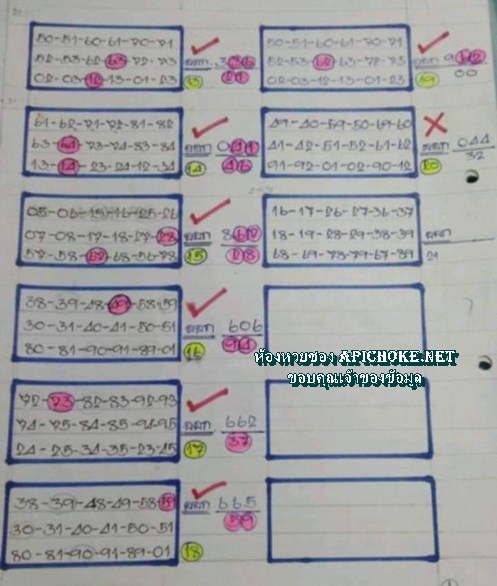 50-51-60-61-70-71
52-53-62-63-72-73 ออก
02-03-12-13-01-23 13
61-62-71-72-81-82
63-64-73-74-83-84 ออก
13-14-23-24-12-34 14 46
05-06-15-16-25-26
07-08-17-18-27-28 ออก
57-58-67-68-56-78 15 28
38-39-48-49-58-59
30-31-40-41-50-51 ออก 606
80-81-90-91-89-01 16 94
72-73-82-83-92-93
74-75-84-85-94-95 ออก 662
24-25-34-35-23-45 17 37
38-39-48-49-58-59
30-31-40-41-50-51 ออก 665
80-81-90-91-89-01 18 59
50-51-60-61-70-71
52-53-62-63-72-73 ออก
02-03-12-13-01-23 19 00
49-40-59-50-69-60
41-42-51-52-61-62 ออก 044
91-92-01-02-90-12 20 32
16-17-26-27-36-37
18-19-28-29-38-39 ออก
68-69-78-79-67-89 21
ห้องหวยซอง APICHOKE.NET
ขอบคุณเจ้าของข้อมูล